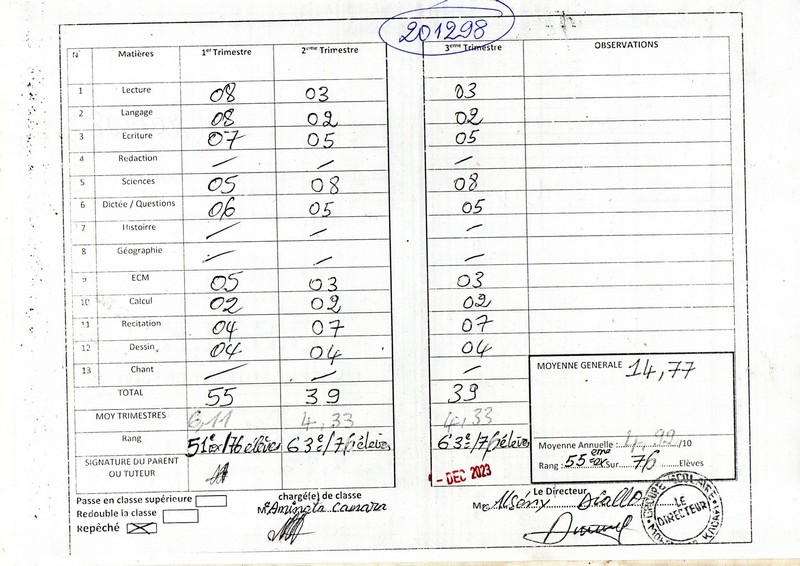 201298
N° Matières 1er Trimestre 2eme Trimestre 3eme Trimestre OBSERVATIONS
1 Lecture 08 03 03
2 Langage 08 02 02
3 Ecriture 07 05 05
4 Redaction / / /
5 Sciences 05 08 08
6 Dictée / Questions 06 05 05
7 Histoirre / / /
8 Géographie / / /
9 ECM 05 03 03
10 Calcul 02 02 02
11 Recitation 04 07 07
12 Dessin 04 04 04
13 Chant / / /
MOYENNE GENERALE 14,77
TOTAL 55 39 39
MOY TRIMESTRES 6,11 4,33 4,33
Rang 51e ex/76 élèves 63e/76 élèves 63e/76 élèves
Moyenne Annuelle : 4,92 /10
Rang : 55eme ex Sur 76 Elèves
SIGNATURE DU PARENT
OU TUTEUR
- DEC 2023
Passe en classe supérieure
Redouble la classe
Repêché
chargé(e) de classe
Me Aminata Camara
Le Directeur
Diallo
GROUPE SCOLAIRE
LE
DIRECTEUR